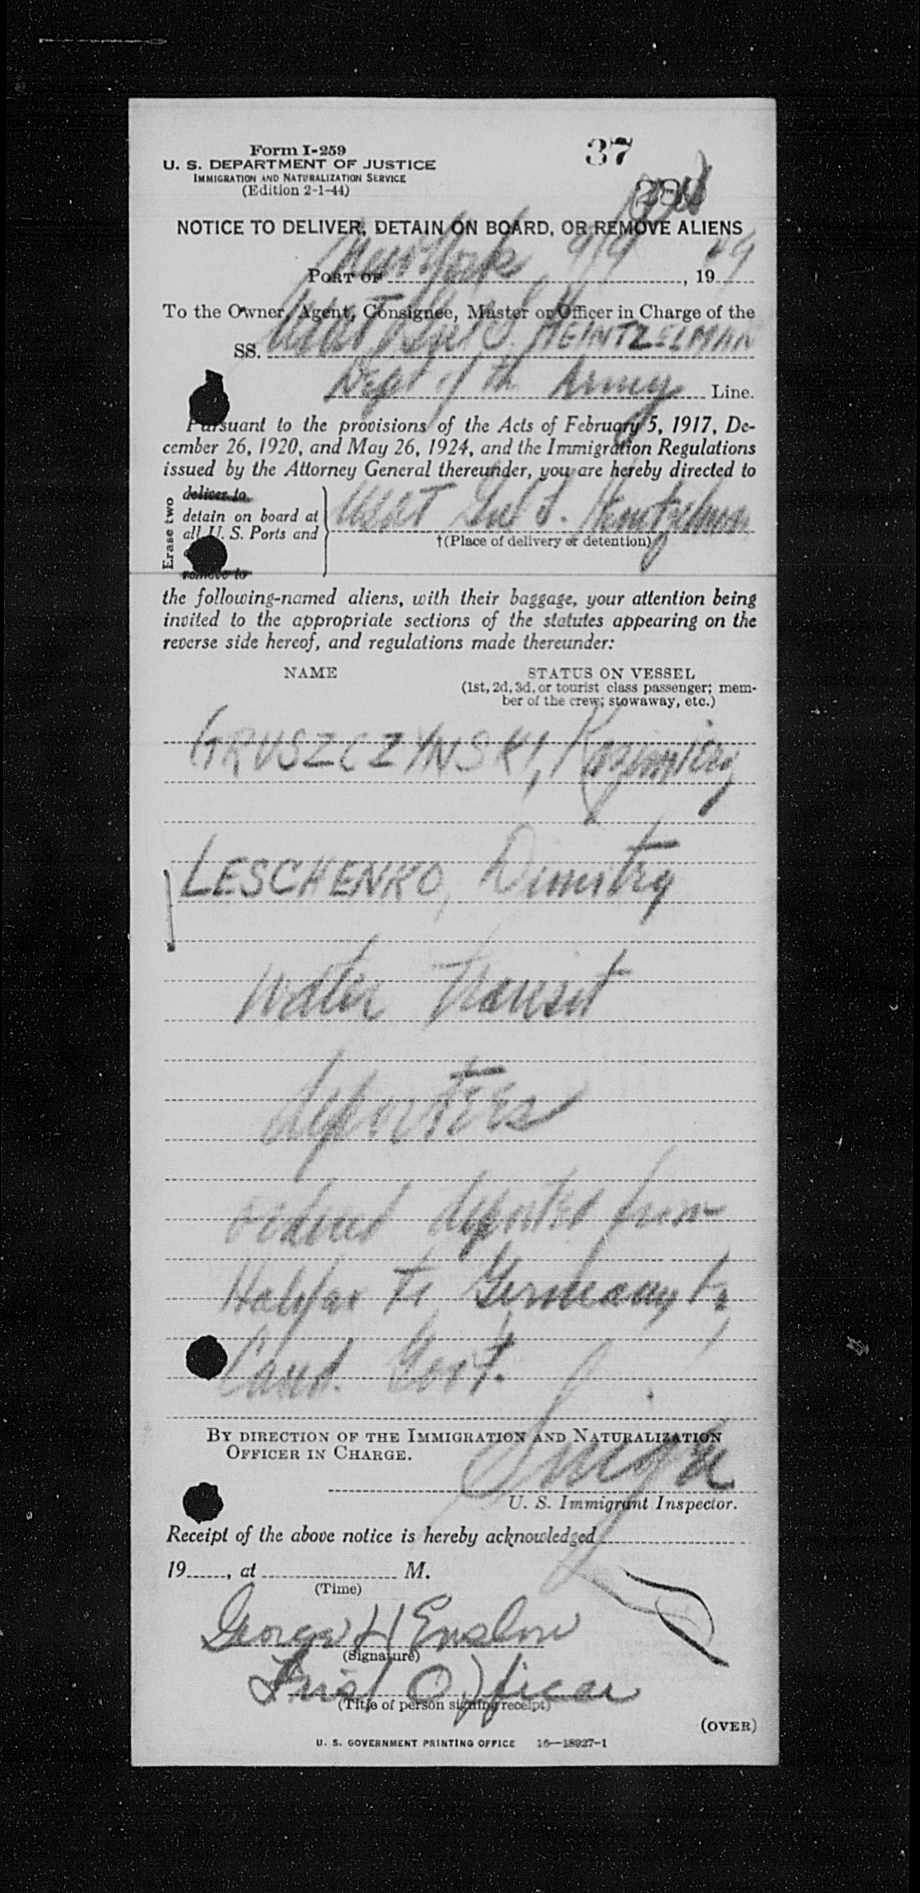 Form I-259
37
U. S. DEPARTMENT OF JUSTICE
IMMIGRATION AND NATURALIZATION SERVICE
(Edition 2-1-44)
NOTICE TO DELIVER, DETAIN ON BOARD, OR REMOVE ALIENS
PORT OF New York, 9/9, 1949
To the Owner, Agent, Consignee, Master or Officer in Charge of the
SS. USAT Genl S. HEINTZELMAN
Dept of th Army Line.
Pursuant to the provisions of the Acts of February 5, 1917, De-
cember 26, 1920, and May 26, 1924, and the Immigration Regulations
issued by the Attorney General thereunder, you are hereby directed to
Erase two
deliver to
detain on board at
all U. S. Ports and
remove to
USAT Genl S. Heintzelman
†(Place of delivery or detention)
the following-named aliens, with their baggage, your attention being
invited to the appropriate sections of the statutes appearing on the
reverse side hereof, and regulations made thereunder:
NAME
STATUS ON VESSEL
(1st, 2d, 3d, or tourist class passenger; mem-
ber of the crew; stowaway, etc.)
GRUSZCZYNSKI, Kazimierz
LESCHENKO, Dimitry
water transit
deportees
ordered deported from
Halifax to Germany by
Cand. Govt.
BY DIRECTION OF THE IMMIGRATION AND NATURALIZATION
OFFICER IN CHARGE.
U. S. Immigrant Inspector.
Receipt of the above notice is hereby acknowledged
19____, at ____ M.
(Time)
George H Enslow
(Signature)
First Officer
(Title of person signing receipt)
(OVER)
U. S. GOVERNMENT PRINTING OFFICE 16—18927-1